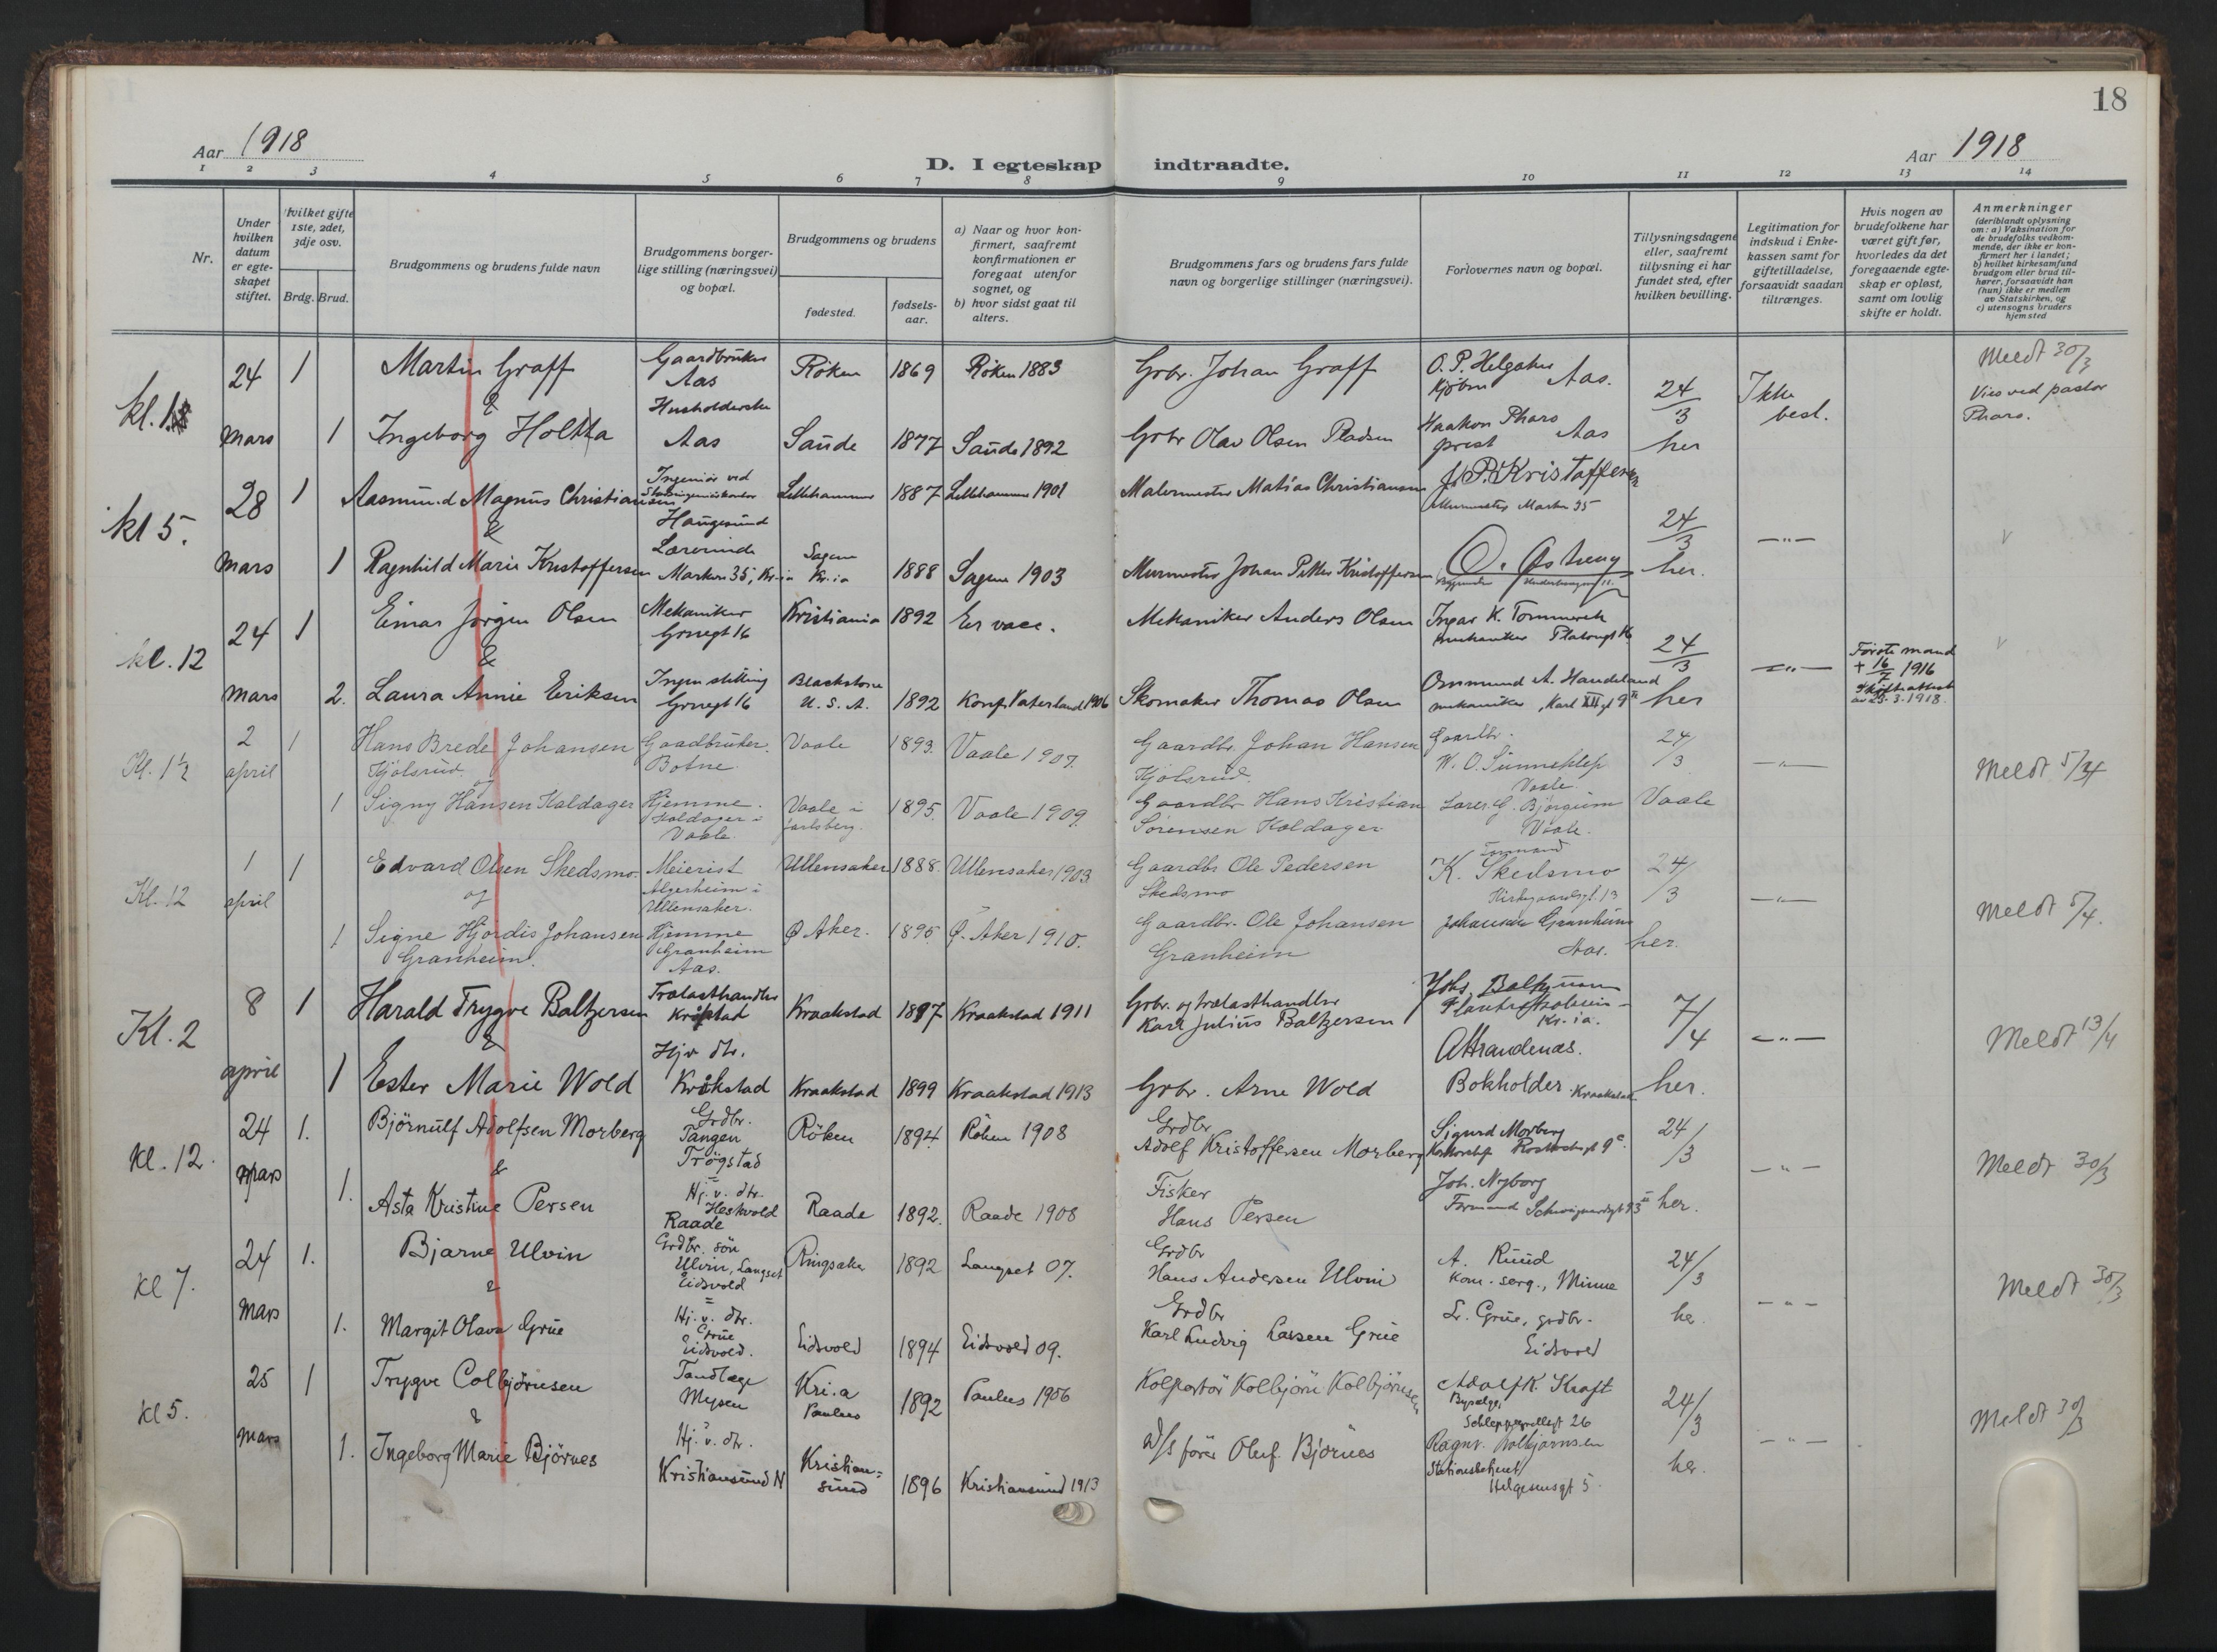 18
Aar 1918
D. I egteskap indtraadte.
Aar 1918
1 2 3 4 5 6 7 8 9 10 11 12 13 14
Nr.
Under hvilken datum er egte-skapet stiftet.
Hvilket gifte 1ste, 2det, 3dje osv.
Brdg. Brud.
Brudgommens og brudens fulde navn
Brudgommens borger-lige stilling (næringsvei) og bopæl.
Brudgommens og brudens
fødested.
fødsels-aar.
a) Naar og hvor kon-firmert, saafremt konfirmationen er foregaat utenfor sognet, og
b) hvor sidst gaat til alters.
Brudgommens fars og brudens fars fulde navn og borgerlige stillinger (næringsvei).
Forlovernes navn og bopæl.
Tillysningsdagene eller, saafremt tillysning ei har fundet sted, efter hvilken bevilling.
Legitimation for indskud i Enke-kassen samt for giftetilladelse, forsaavidt saadan tiltrænges.
Hvis nogen av brudefolkene har været gift før, hvorledes da det foregaaende egte-skap er opløst, samt om lovlig skifte er holdt.
Anmerkninger
(deriblandt oplysning om: a) Vaksination for de brudefolks vedkom-mende, der ikke er kon-firmert her i landet; b) hvilket kirkesamfund brudgom eller brud til-hører, forsaavidt han (hun) ikke er medlem av Statskirken, og c) utensogns bruders hjemsted
24 mars 1 Martin Graff Gaardbruker Aas Röken 1869 Röken 1883 Grbr. Johan Graff Aas. 24/3 her Ikke besl. Meldt 30/3
&
1 Ingeborg Holtta Husholderske Aas Sande 1877 Sande 1892 Grbr Olav Olsen Pladsen Haakon Pharo prest Aas Vies ved pastor Pharo.
kl 5. 28 mars 1 Aasmund Magnus Christiansen Ingeniör ved Haugesund Lillehammer 1887 Lillehammer 1901 Malermester Matias Christiansen J. P. Kristoffersen Murmester Marken 35 24/3 her. —"—
&
1 Ragnhild Marie Kristoffersen Lærerinde Marken 35, Kr.ia Sagene Kr.ia 1888 Sagene 1903 Murmester Johan Petter Kristoffersen
kl. 12 24 mars 1 Einar Jörgen Olsen Mekaniker Kristiania 1892 Mekaniker Anders Olsen Ingar K. mekaniker 24/3 her —"— Förste mand + 16/7 1916
&
2. Laura Annie Eriksen Ingen stilling Blackstone U.S.A. 1892 Konf. Vaterland 1906 Skomaker Thomas Olsen Ommund A. Handeland mekaniker, Karl XII gt 9 Skifteattest av 25-3-1918.
Kl. 1½ 2 april 1 Hans Brede Johansen Kjölsrud Gaardbruker. Botne. Vaale 1893. Vaale 1907. Gaardbr. Johan Hansen Kjölsrud. Gaardbr. Vaale. 24/3 Vaale —"— Meldt 5/4
og
1 Signy Hansen Haldager Hjemme. Haldager i Vaale. Vaale i Jarlsberg. 1895. Vaale 1909. Gaardbr Hans Kristian Sörensen Haldager Lærer G. Björgum Vaale.
Kl. 12 1 april 1 Edvard Olsen Skedsmo. Meierist Algerheim i Ullensaker. Ullensaker 1888. Ullensaker 1903 Gaardbr Ole Pedersen Skedsmo K. Skedsmo Kirkegaardsgt. 13 24/3 her. —"— Meldt 5/4.
og
1 Signe Hjördis Johansen Granheim. Hjemme Granheim Aas. Ø Aker. 1895 Ø. Aker 1910. Gaardbr. Ole Johansen Granheim Granheim Aas.
Kl. 2 8 april 1 Harald Trygve Baltzersen Trælasthandler Kråkstad Kraakstad 1887 Kraakstad 1911 Grbr. og trælasthandler Karl Julius Baltzersen Kr.ia. 7/4 her. —"— Meldt 13/4
&
1 Ester Marie Wold Hjv. dtr. Kråkstad Kraakstad 1899 Kraakstad 1913 Grbr. Arne Wold Bokholder. Kraakstad
kl. 12. 24 mars 1. Björnulf Adolfsen Morberg Grdbr. Tangen Trögstad Röken 1894 Röken 1908 Grdbr Adolf Kristoffersen Morberg Sigurd Morberg 24/3 her. —"— Meldt 30/3
&
1. Asta Kristine Persen Hj. v. dtr. Heskvold Raade Raade 1892. Raade 1908 Fisker Hans Persen Joh. Nyborg Formand Schweigaardsgt 93
kl 7. 24 mars 1. Bjarne Ulvin Grdbr. sön Ulvin, Langset Eidsvold Ringsaker 1892 Langset 07. Grdbr Hans Andersen Ulvin A. Ruud Kom.-serg., Minne 24/3 her. —"— Meldt 30/3
&
1. Margit Olava Grue Hj. v. dtr. Grue Eidsvold. Eidsvold 1894 Eidsvold 09. Grdbr Karl Ludvig Larsen Grue L. Grue, grdbr. Eidsvold
kl 5. 25 mars 1 Trygve Colbjörnsen Tandlæge Mysen Kri.a Paulus 1892 Paulus 1906 Kolportör Kolbjörn Kolbjörnsen Adolf K. Kraft Schleppegrellsgt 26 24/3 her. —"— Meldt 30/3
&
1. Ingeborg Marie Björnes Hj. v. dtr. Kristiansund N Kristian=sund 1896 Kristiansund 1913 D/s förer Oluf Björnes Ragnv. Kolbjörnsen Stationsbetjent Helgesensgt 5.